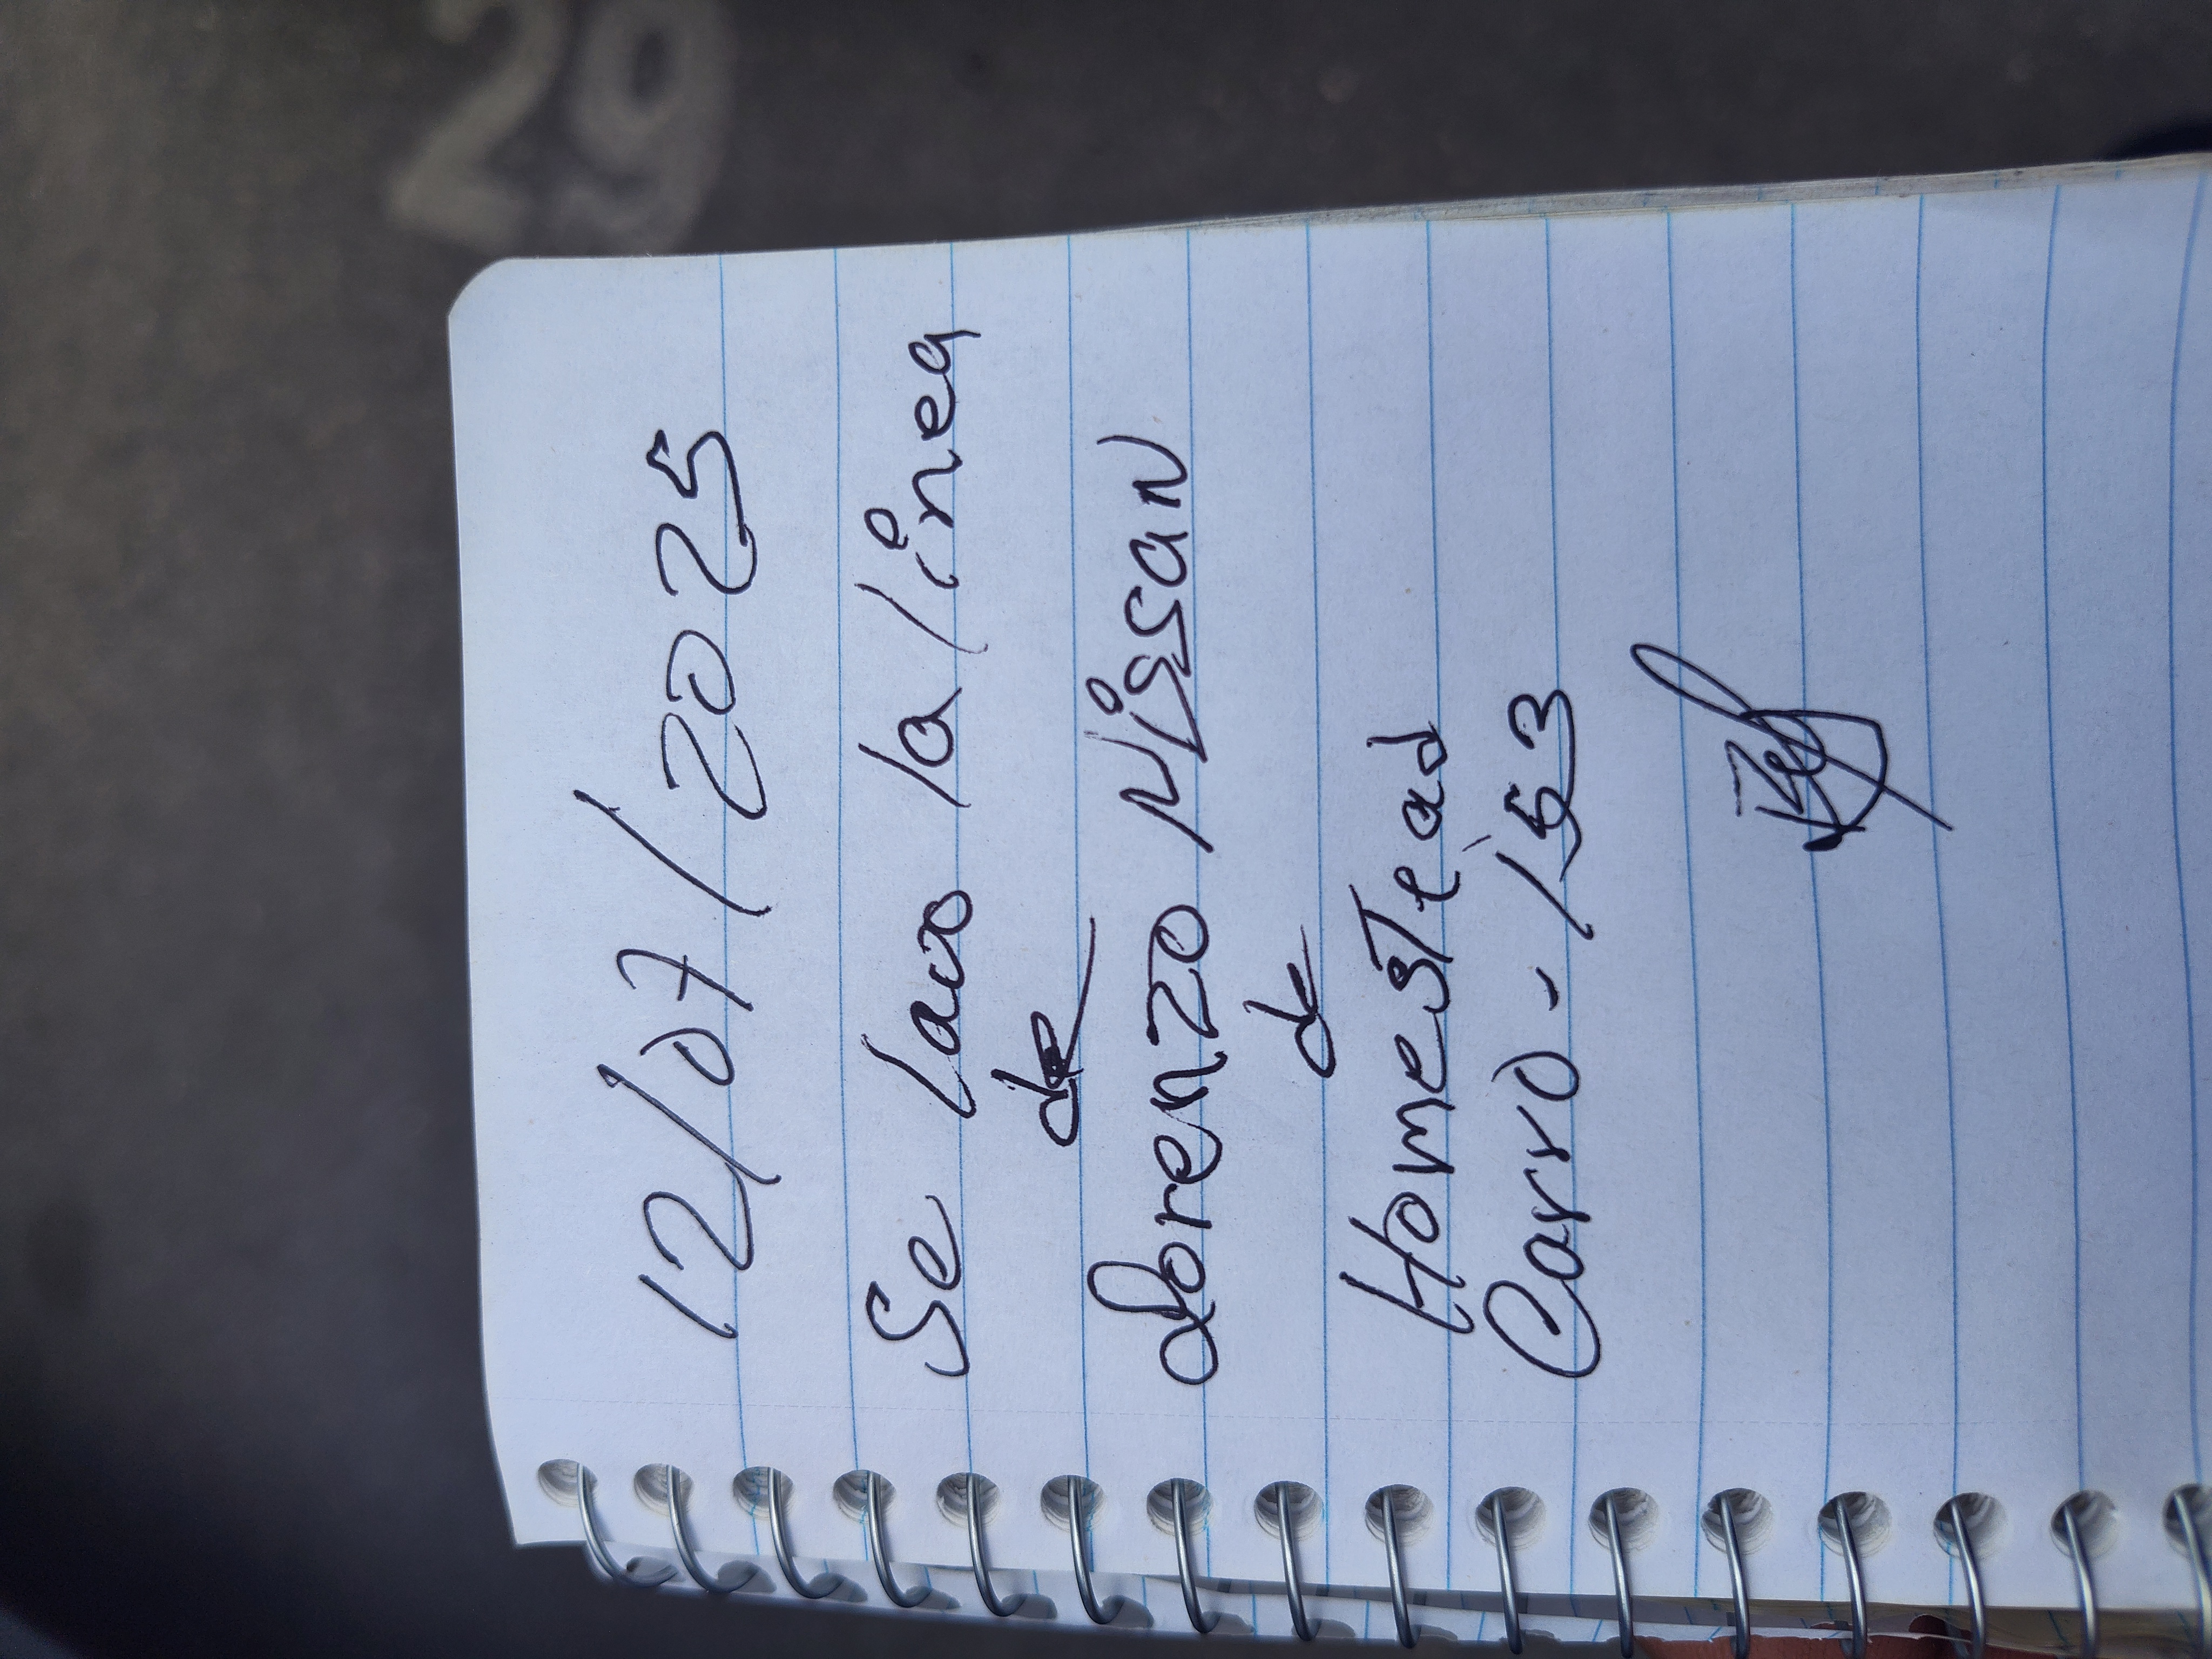 29
12/07/2025
Se lavo la linea
de
Lorenzo Nissan
de
Homestead
Carro - 153